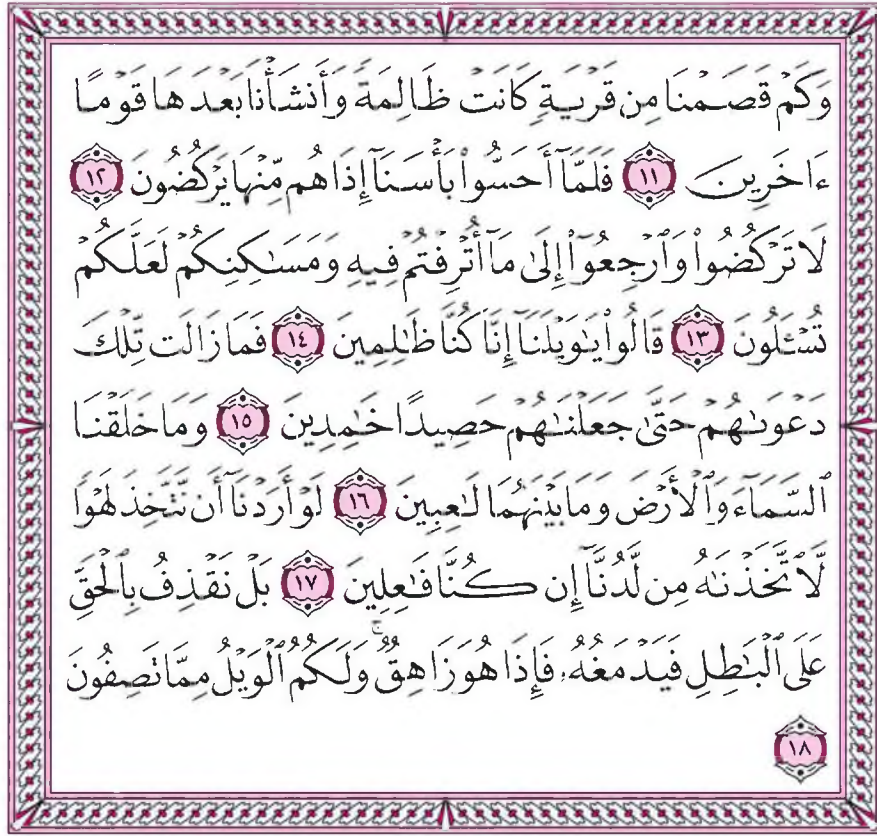 وَكَمْ قَصَمْنَا مِن قَرْيَةٍ كَانَتْ ظَالِمَةً وَأَنشَأْنَا بَعْدَهَا قَوْمًا
ءَاخَرِينَ ١١ فَلَمَّآ أَحَسُّوا۟ بَأْسَنَآ إِذَا هُم مِّنْهَا يَرْكُضُونَ ١٢
لَا تَرْكُضُوا۟ وَٱرْجِعُوٓا۟ إِلَىٰ مَآ أُتْرِفْتُمْ فِيهِ وَمَسَـٰكِنِكُمْ لَعَلَّكُمْ
تُسْـَٔلُونَ ١٣ قَالُوا۟ يَـٰوَيْلَنَآ إِنَّا كُنَّا ظَـٰلِمِينَ ١٤ فَمَا زَالَت تِّلْكَ
دَعْوَىٰهُمْ حَتَّىٰ جَعَلْنَـٰهُمْ حَصِيدًا خَـٰمِدِينَ ١٥ وَمَا خَلَقْنَا
ٱلسَّمَآءَ وَٱلْأَرْضَ وَمَا بَيْنَهُمَا لَـٰعِبِينَ ١٦ لَوْ أَرَدْنَآ أَن نَّتَّخِذَ لَهْوًا
لَّٱتَّخَذْنَـٰهُ مِن لَّدُنَّآ إِن كُنَّا فَـٰعِلِينَ ١٧ بَلْ نَقْذِفُ بِٱلْحَقِّ
عَلَى ٱلْبَـٰطِلِ فَيَدْمَغُهُۥ فَإِذَا هُوَ زَاهِقٌ ۚ وَلَكُمُ ٱلْوَيْلُ مِمَّا تَصِفُونَ
١٨